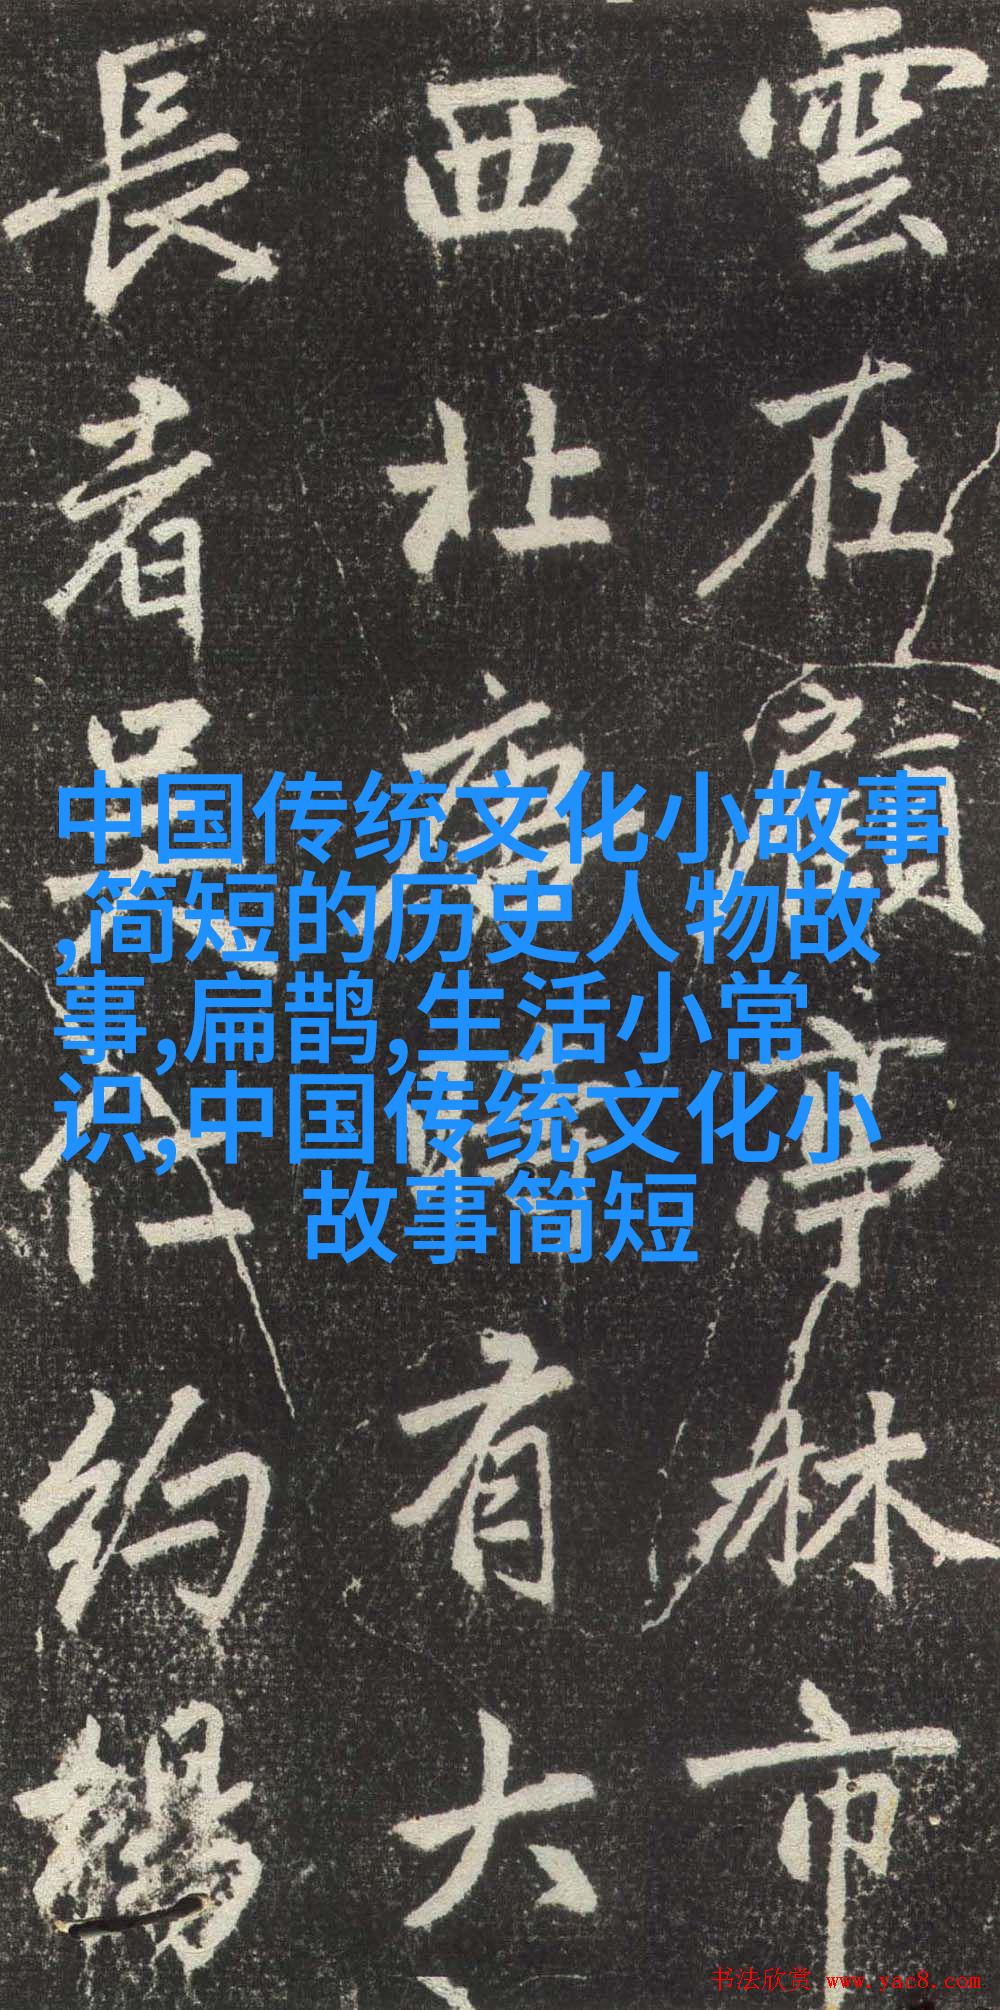 雲在顧亭林市
西北唐有大
長者吳約
中国传统文化小故事
,简短的历史人物故
事,扁鹊,生活小常
识,中国传统文化小
故事简短
书法欣赏 www.yac8.com